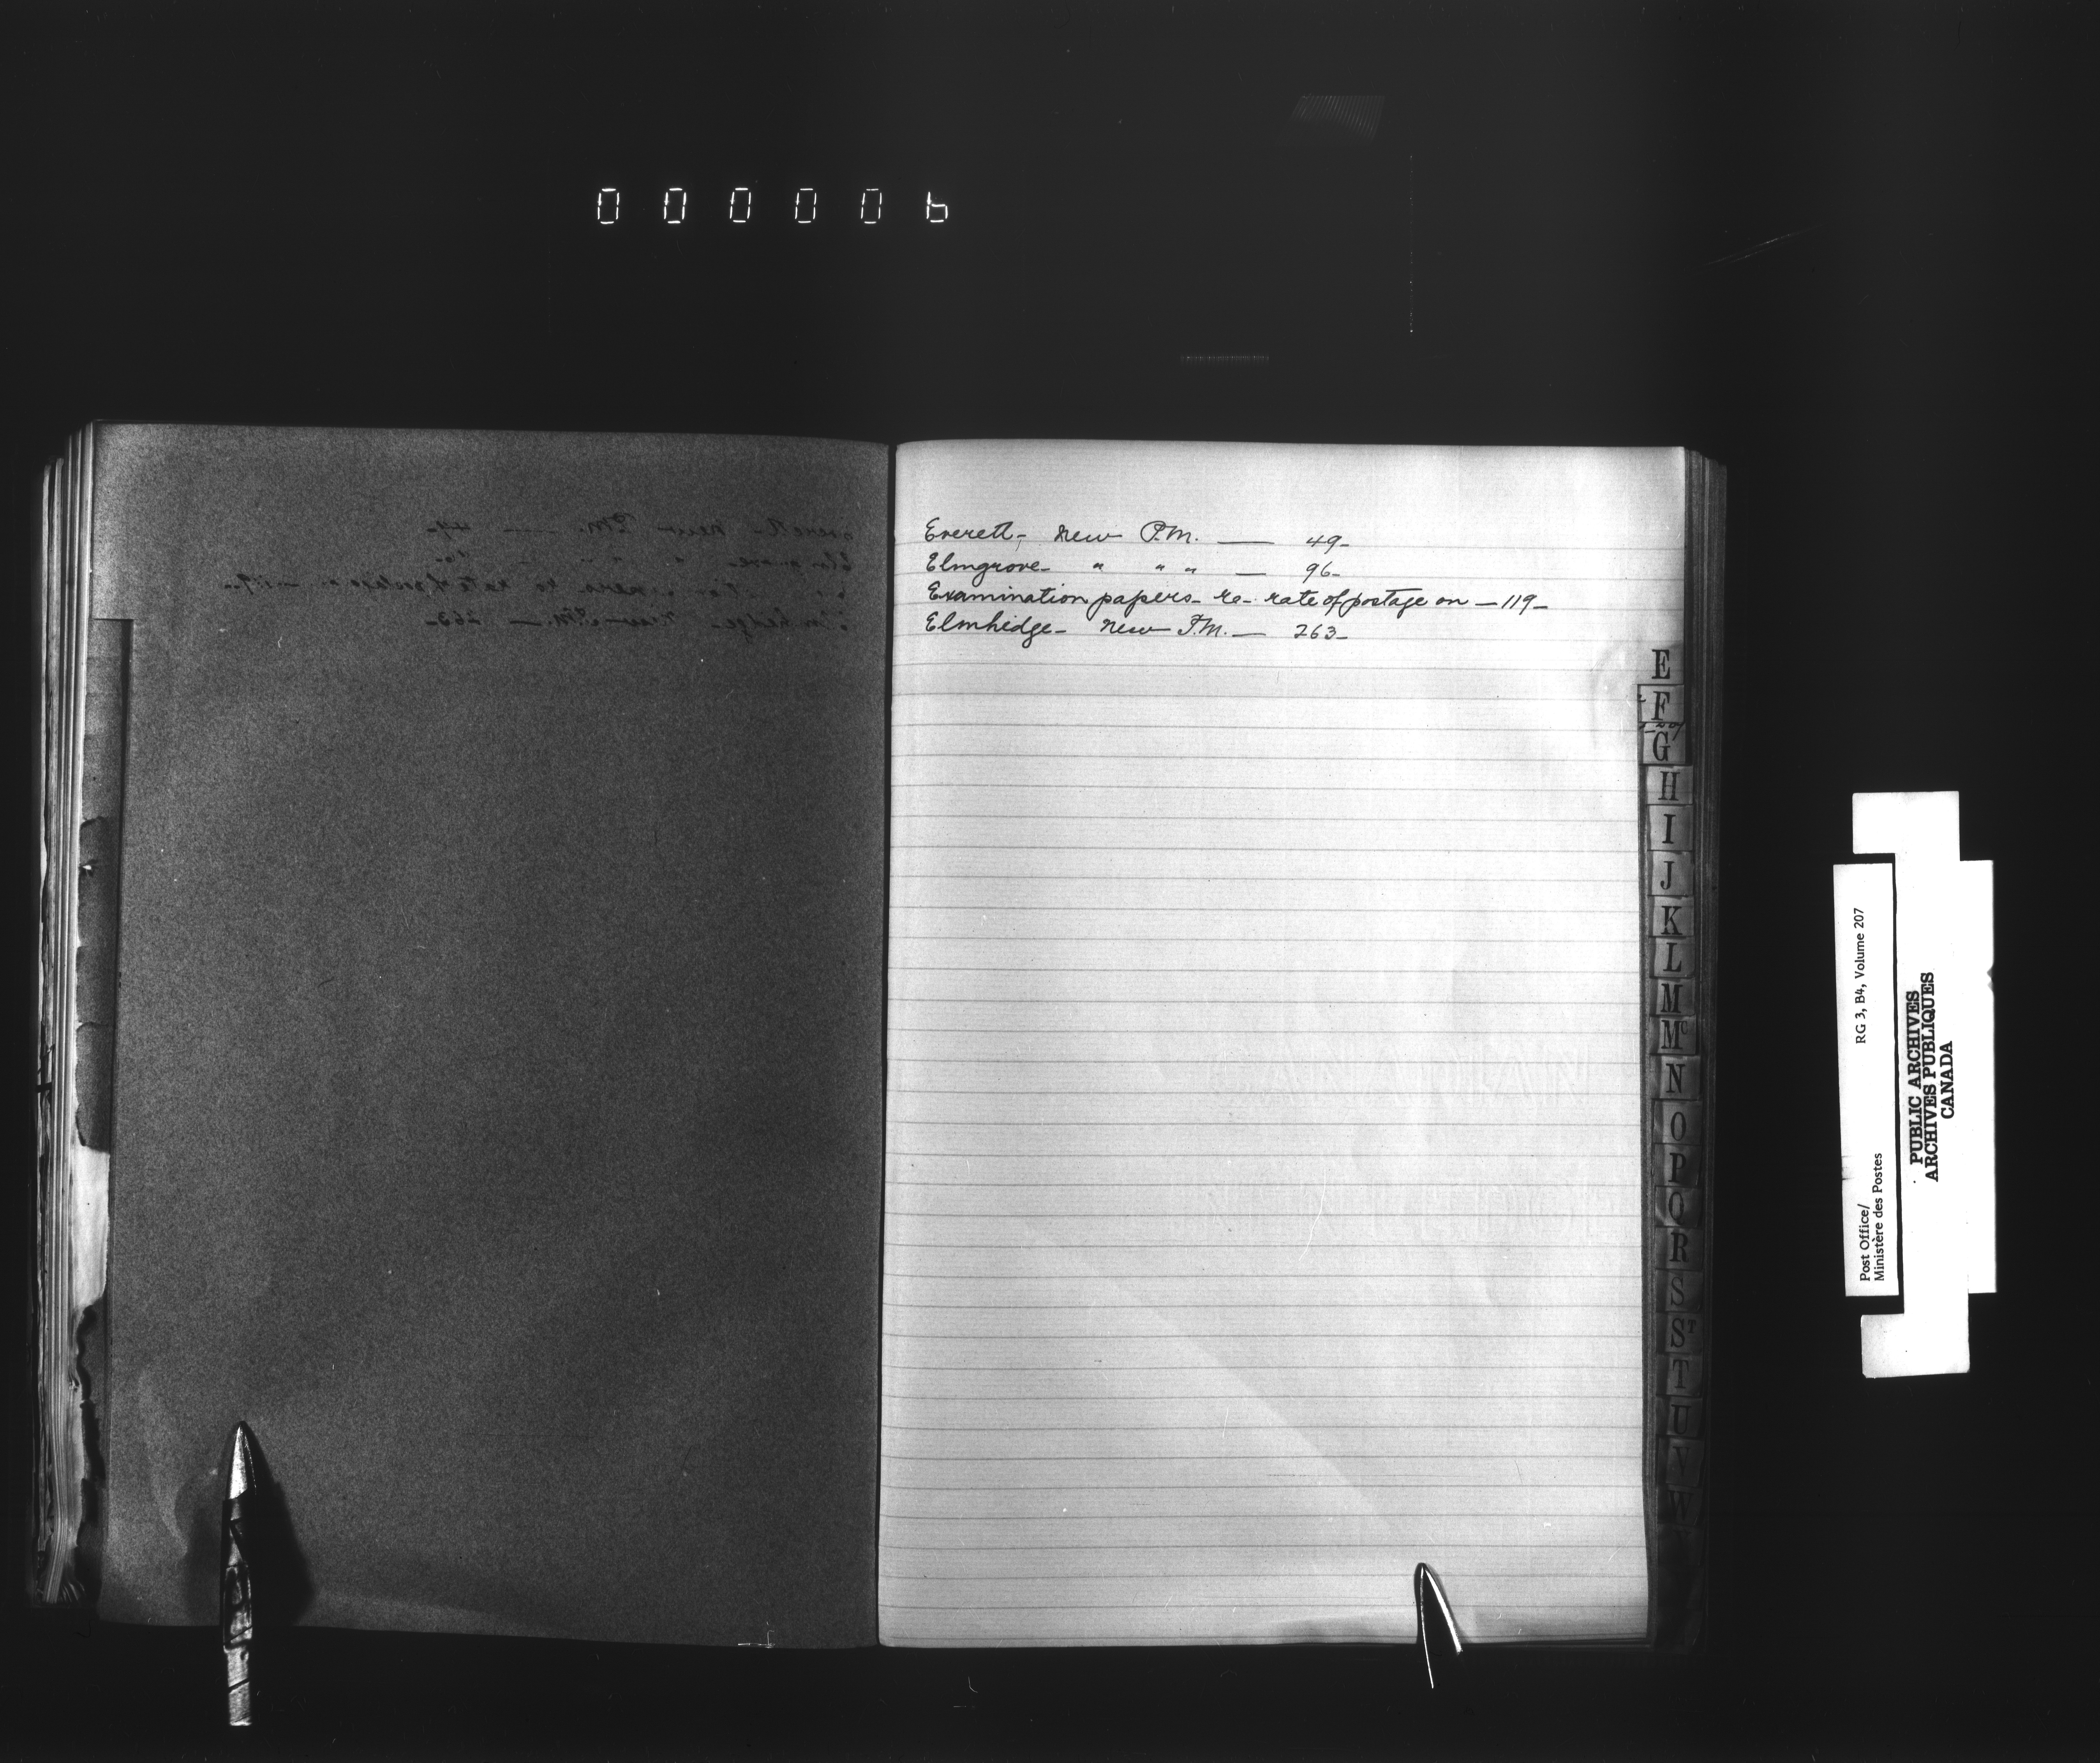 000006
Everett- New P.M. — 49-
Elmgrove- " " " — 96-
Examination papers- re- rate of postage on — 119-
Elmhedge- New P.M. — 263-
E
F
G
H
I
J
K
L
M
Mc
N
O
P
Q
R
S
ST
T
U
V
W
Post Office/
Ministère des Postes
RG 3, B4, Volume 207
PUBLIC ARCHIVES
ARCHIVES PUBLIQUES
CANADA